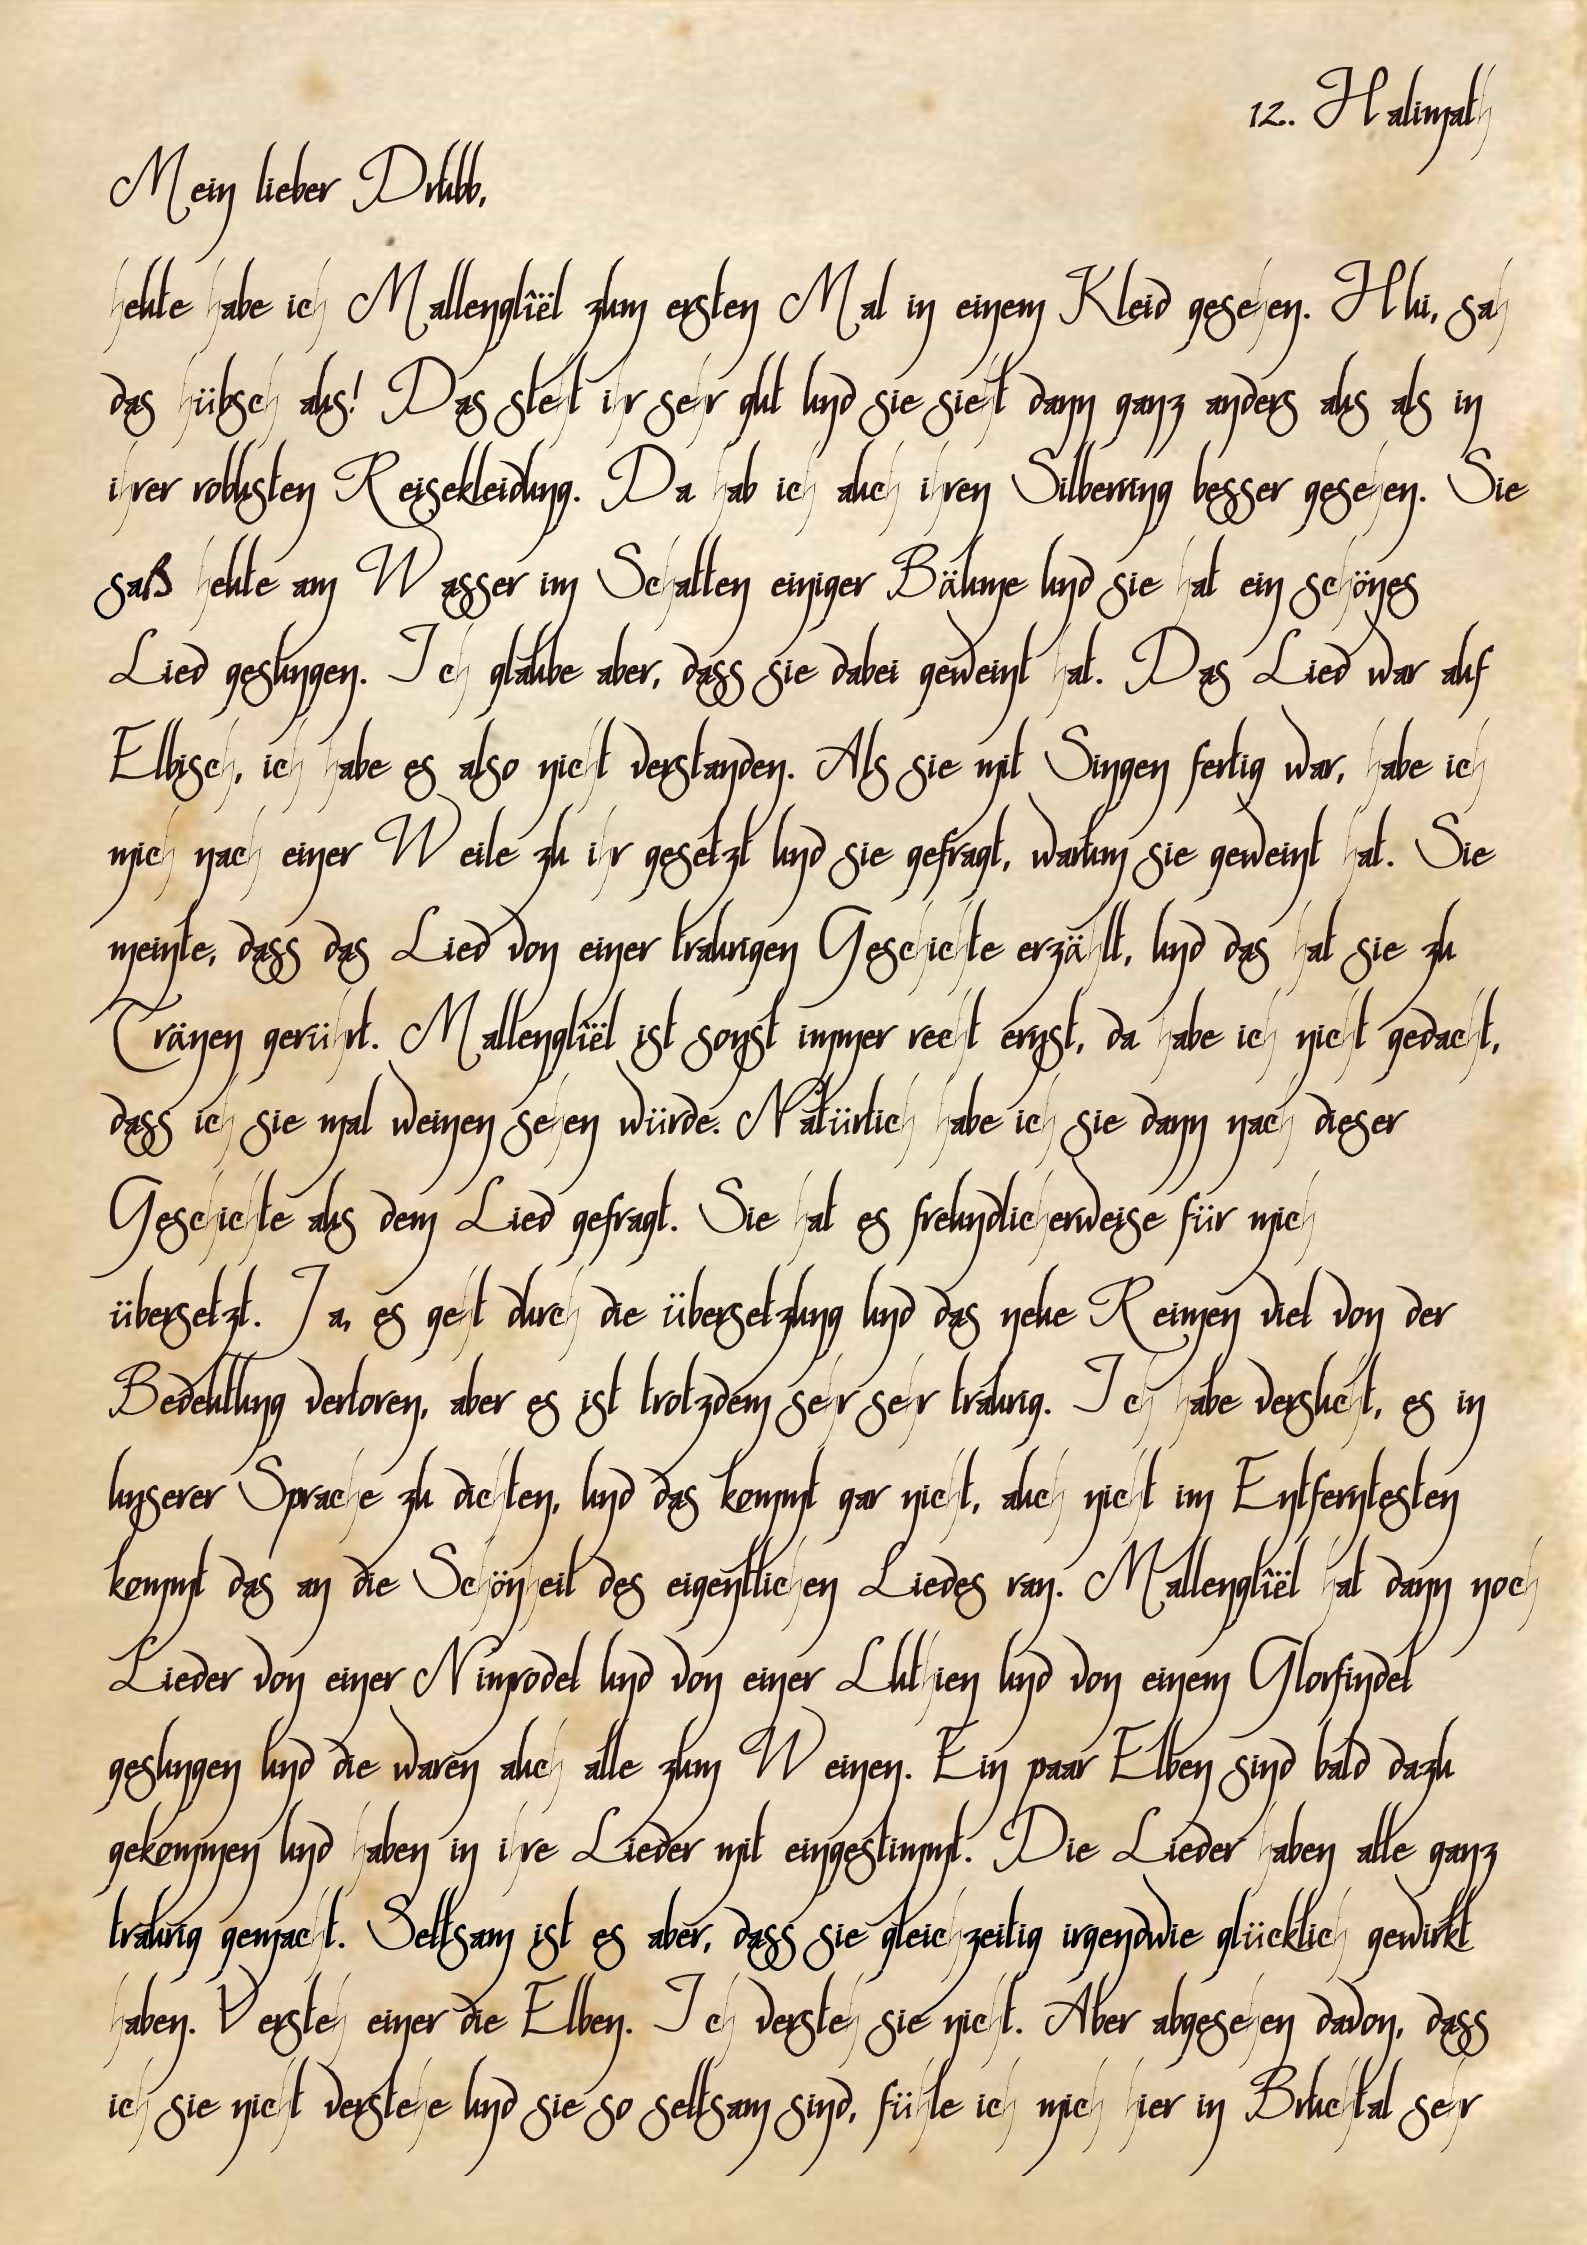 12. Halimath
Mein lieber Drubb,
heute habe ich Mallenglîël zum ersten Mal in einem Kleid gesehen. Hui, sah
das hübsch aus! Das steht ihr sehr gut und sie sieht dann ganz anders aus als in
ihrer robusten Reisekleidung. Da hab ich auch ihren Silberring besser gesehen. Sie
saß heute am Wasser im Schatten einiger Bäume und sie hat ein schönes
Lied gesungen. Ich glaube aber, dass sie dabei geweint hat. Das Lied war auf
Elbisch, ich habe es also nicht verstanden. Als sie mit Singen fertig war, habe ich
mich nach einer Weile zu ihr gesetzt und sie gefragt, warum sie geweint hat. Sie
meinte, dass das Lied von einer traurigen Geschichte erzählt, und das hat sie zu
Tränen gerührt. Mallenglîël ist sonst immer recht ernst, da habe ich nicht gedacht,
dass ich sie mal weinen sehen würde. Natürlich habe ich sie dann nach dieser
Geschichte aus dem Lied gefragt. Sie hat es freundlicherweise für mich
übersetzt. Ja, es geht durch die übersetzung und das neue Reimen viel von der
Bedeutung verloren, aber es ist trotzdem sehr sehr traurig. Ich habe versucht, es in
unserer Sprache zu dichten, und das kommt gar nicht, auch nicht im Entferntesten
kommt das an die Schönheit des eigentlichen Liedes ran. Mallenglîël hat dann noch
Lieder von einer Nimrodel und von einer Luthien und von einem Glorfindel
gesungen und die waren auch alle zum Weinen. Ein paar Elben sind bald dazu
gekommen und haben in ihre Lieder mit eingestimmt. Die Lieder haben alle ganz
traurig gemacht. Seltsam ist es aber, dass sie gleichzeitig irgendwie glücklich gewirkt
haben. Versteh einer die Elben. Ich versteh sie nicht. Aber abgesehen davon, dass
ich sie nicht verstehe und sie so seltsam sind, fühle ich mich hier in Bruchtal sehr